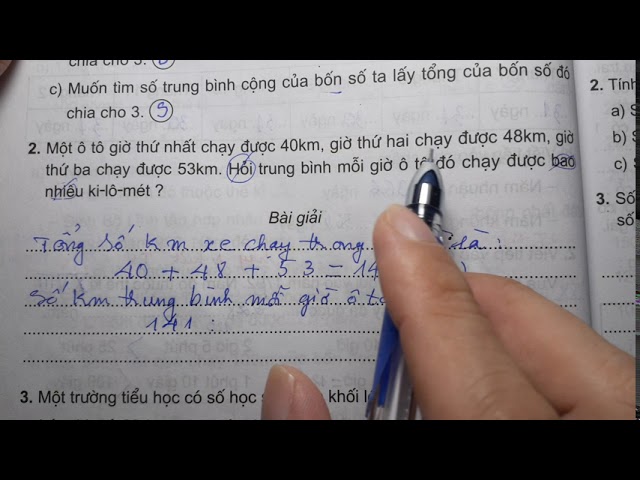 chia cho 5.
c) Muốn tìm số trung bình cộng của bốn số ta lấy tổng của bốn số đó
chia cho 3. S
2. Một ô tô giờ thứ nhất chạy được 40km, giờ thứ hai chạy được 48km, giờ
thứ ba chạy được 53km. Hỏi trung bình mỗi giờ ô tô đó chạy được bao
nhiêu ki-lô-mét ?
Bài giải
Tổng số km xe chạy trong là :
40 + 48 + 53 = 14
Số km trung bình mỗi giờ ô tô
141 :
3. Một trường tiểu học có số học khối
2. Tính
a)
b)
c)
3. Số
số